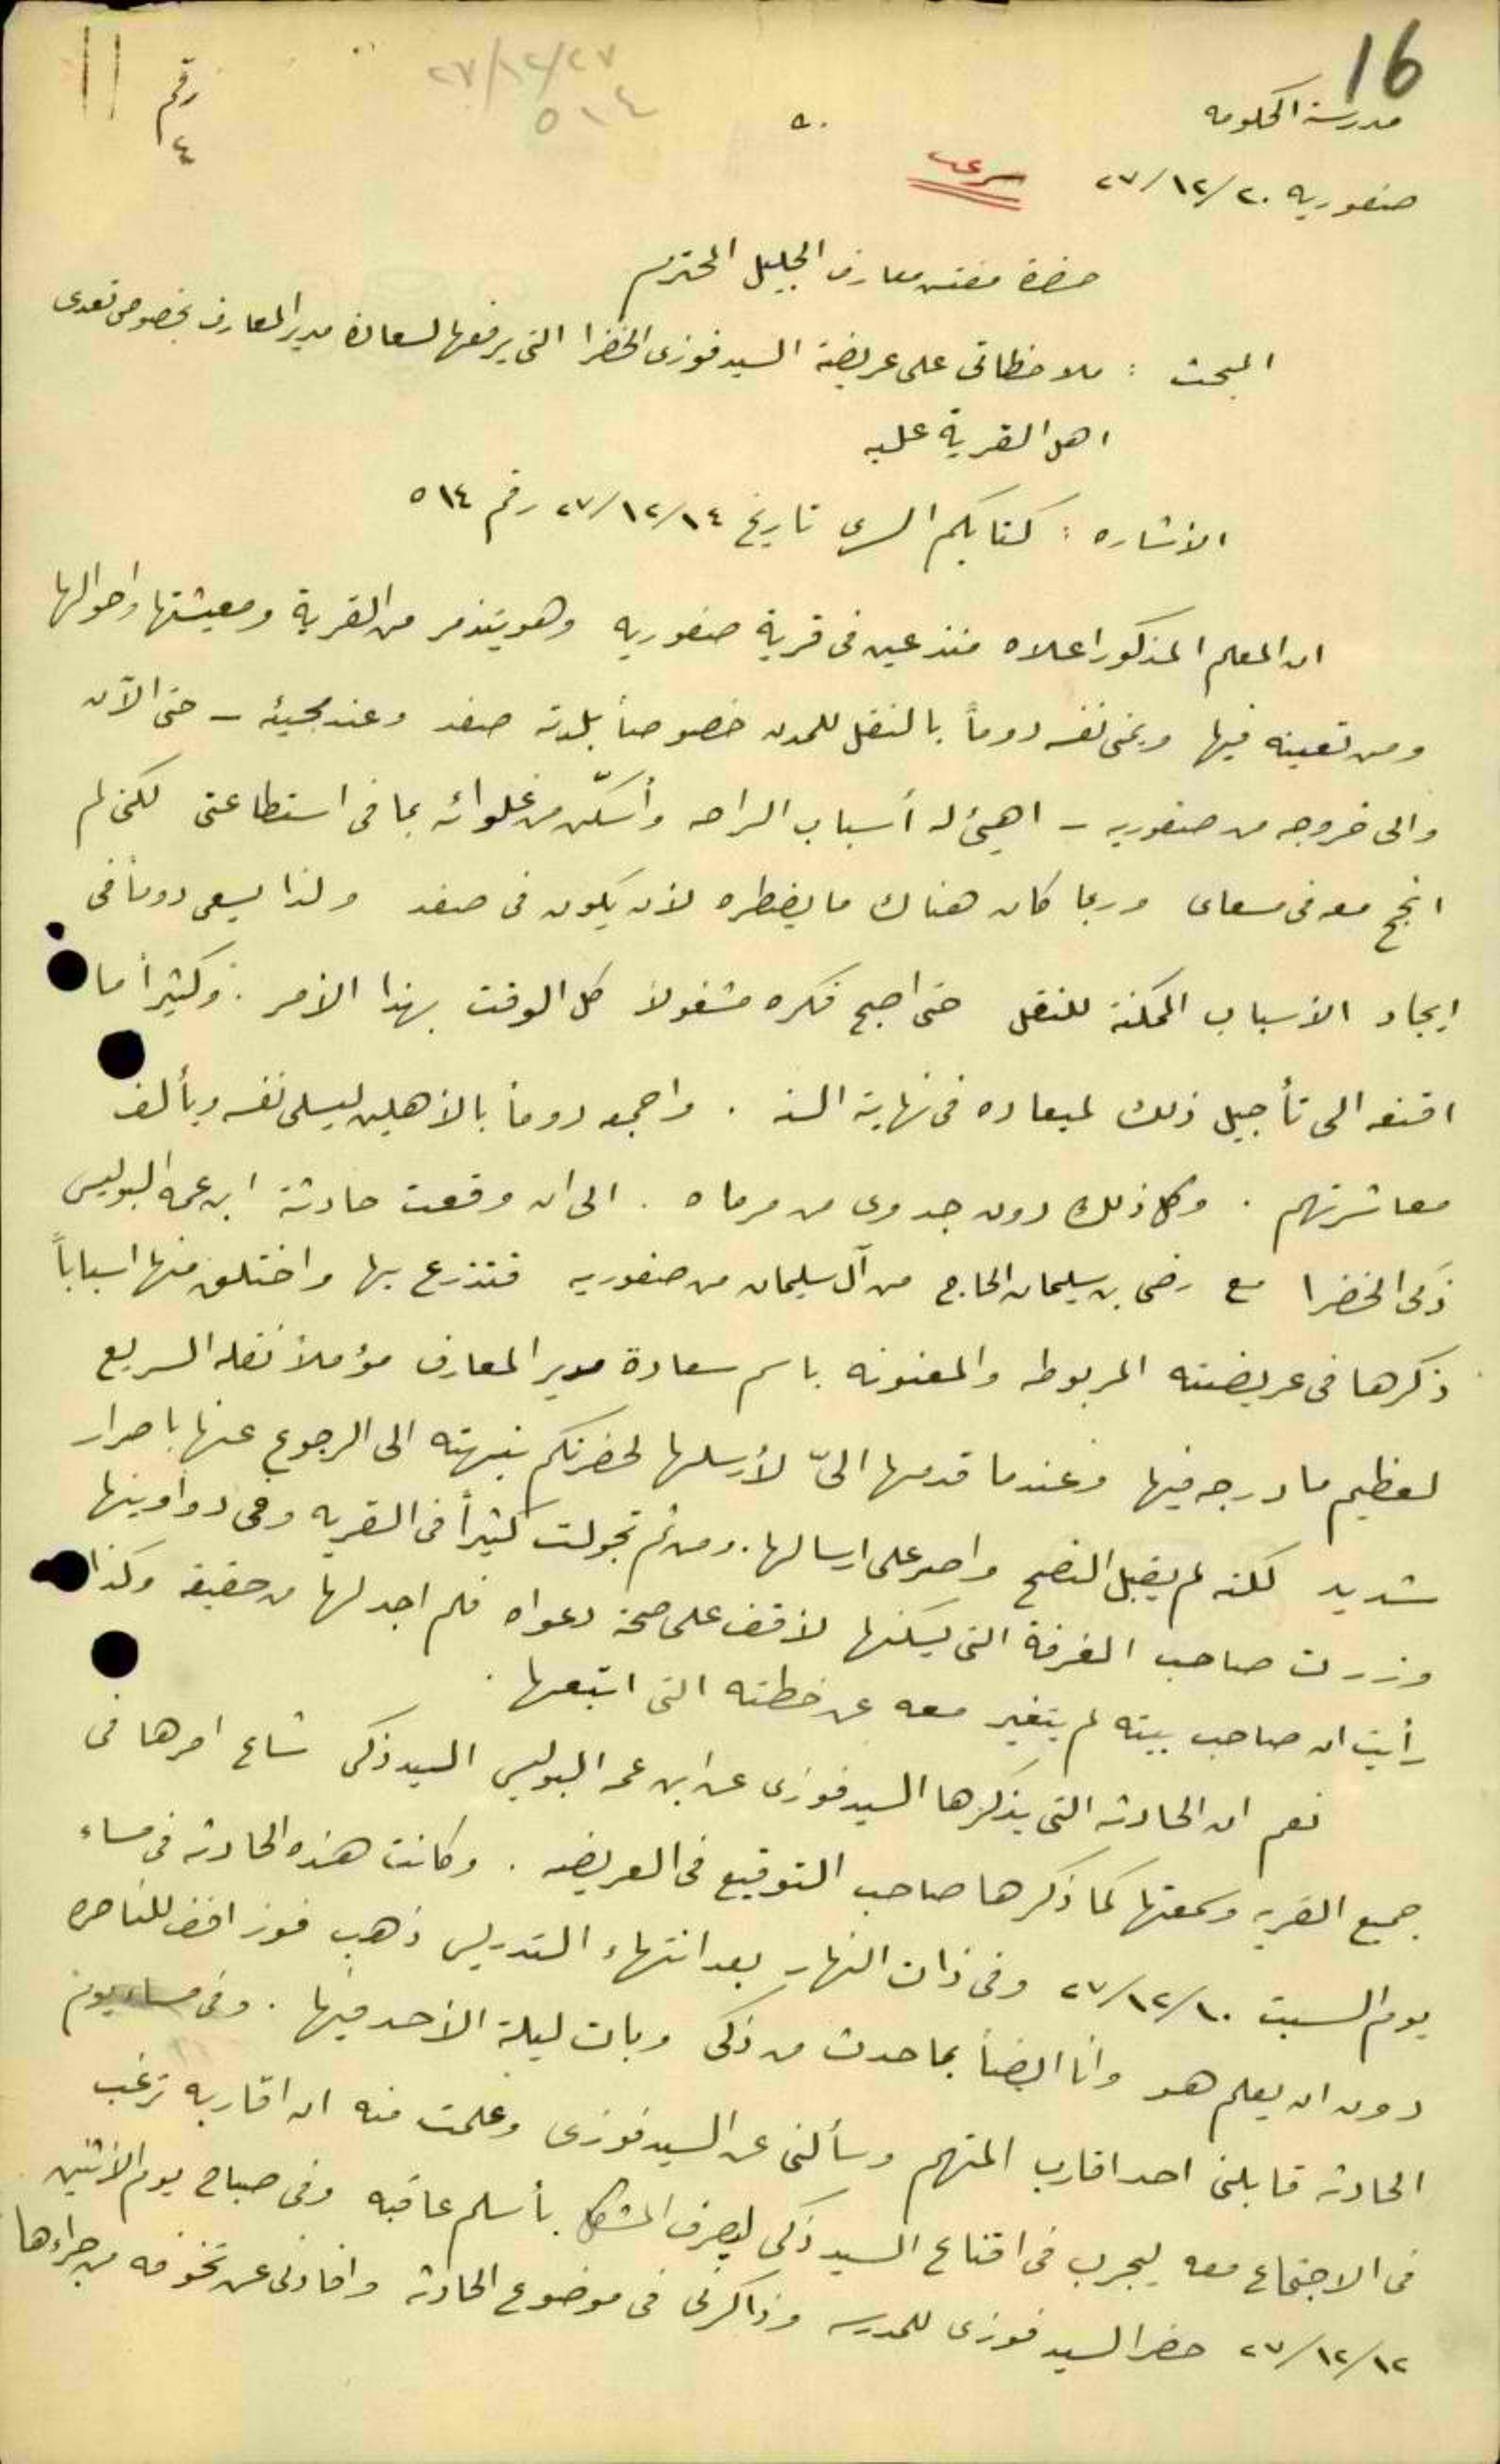 16
٢٧/١٢/٢٧
٥١٤
رقم
٤
١١
مدرسة الحكومه
صفوريه ٢٧/١٢/٢٠
سري
حضرة مفتش معارف الجليل المحترم
المبحث : ملاحظاتي على عريضة السيد فوزي الخضرا التي يرفعها لسعادة مدير المعارف بخصوص تعدي
اهل القرية عليه
الأشاره : كتابكم السري تاريخ ٢٧/١٢/١٤ رقم ٥١٤
ان المعلم المذكور اعلاه منذ عين في قرية صفوريه وهو يتذمر من القرية ومعيشتها واحوالها
ومن تعيينه فيها ويمني نفسه دوماً بالنقل للمدن خصوصاً بلدته صفد وعند مجيئه – حتى الآن
والى خروجه من صفوريه – اهيئ له أسباب الراحه وأسكّن من غلوائه بما في استطاعتي لكني لم
انجح معه في مسعاي وربما كان هناك ما يضطره لأن يكون في صفد ولذا يسعى دوماً في
ايجاد الأسباب الممكنة للنقل حتى اصبح فكره مشغولاً كل الوقت بهذا الأمر . وكثيراً ما
اقنعه الى تأجيل ذلك لميعاده في نهاية السنه . واجمعه دوماً بالأهلين ليسلي نفسه ويألف
معاشرتهم . وكل ذلك دون جدوى من مرماه . الى ان وقعت حادثة ابن عمه البوليس
زكي الخضرا مع رضي بن سليمان الحاج من آل سليمان من صفوريه فتذرع بها واختلق منها اسباباً
ذكرها في عريضته المربوطه والمعنونه باسم سعادة مدير المعارف مؤملاً نقله السريع
لعظيم ما درجه فيها وعندما قدمها اليّ لأرسلها لحضرتكم نبهته الى الرجوع عنها باصرار
شديد لكنه لم يقبل النصح واصر على ارسالها . ومن ثم تجولت كثيراً في القريه وفي دواوينها
وزرت صاحب الغرفة التي يسكنها لأقف على صحة دعواه فلم اجد لها من حقيقه وكذا
رأيت ان صاحب بيته لم يتغير معه عن خطته التي اتبعها .
نعم ان الحادثه التي يذكرها السيد فوزي عن ابن عمه البوليس السيد زكي شاع امرها في
جميع القريه وسمعتها كما ذكرها صاحب التوقيع في العريضه . وكانت هذه الحادثه في مساء
يوم السبت ٢٧/١٢/١٠ وفي ذات النهار بعد انتهاء التدريس ذهب فوز افندي للناصره
دون ان يعلم هو وانا ايضاً بما حدث من زكي وبات ليلة الأحد فيها . وفي مساء يوم
الحادثه قابلني احد اقارب المتهم وسألني عن السيد فوزي وعلمت منه ان اقاربه ترغب
في الاجتماع معه ليجرب في اقناع السيد زكي ليصرف المشكل بأسلم عاقبه وفي صباح يوم الأثنين
٢٧/١٢/١٢ حضر السيد فوزي للمدرسه وذاكرني في موضوع الحادثه وافادني عن تخوفه من جراءها